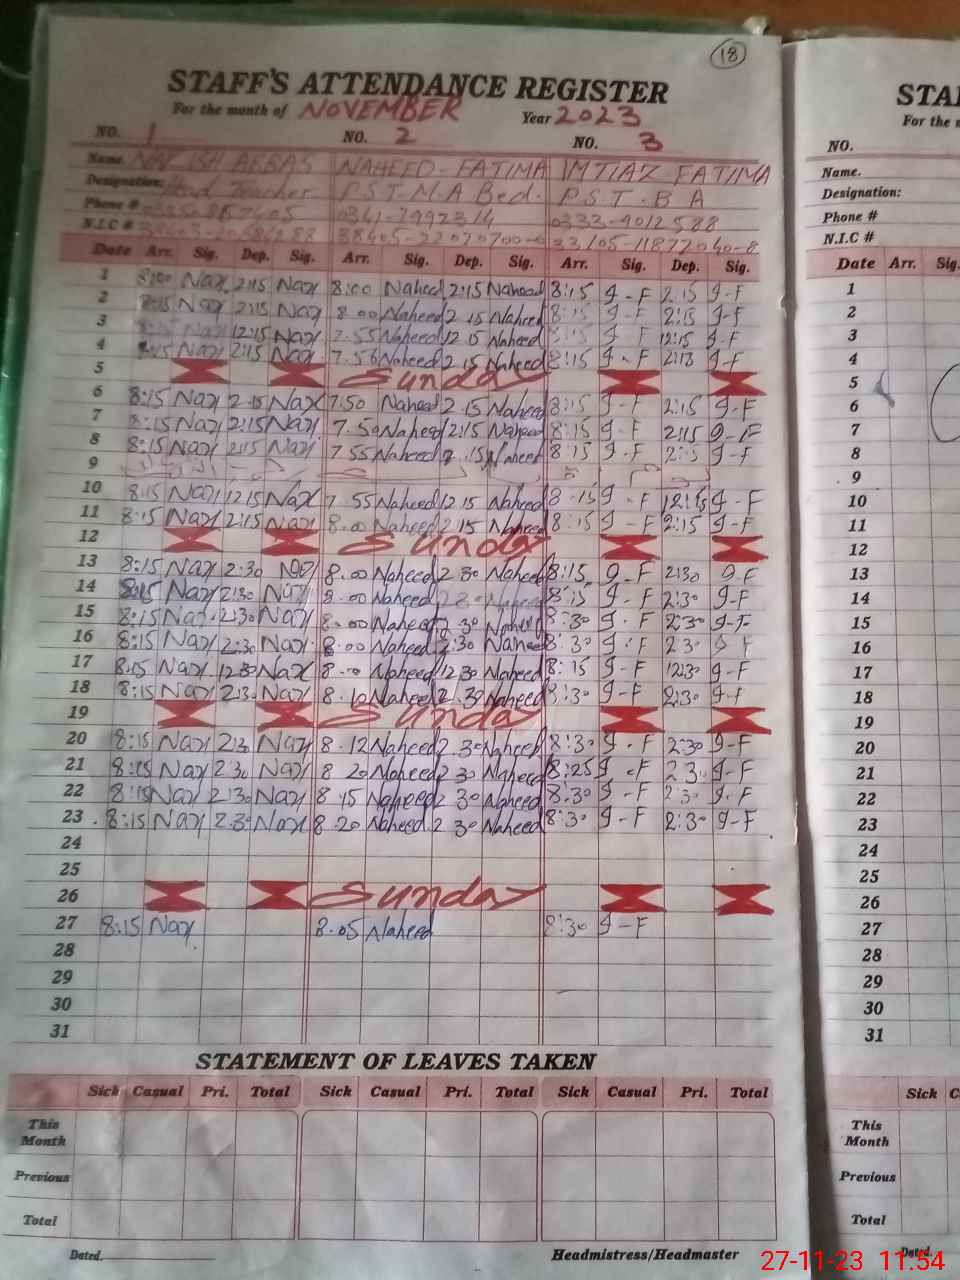 18
STAFF'S ATTENDANCE REGISTER
For the month of NOVEMBER Year 2023
NO. 1 NO. 2 NO. 3
Name. ABBAS NAHEED - FATIMA IMTIAZ FATIMA
Designation: Head Teacher P.S.T M.A Bed. P.S.T. B A
Phone #
N.I.C #
Date Arr. Sig. Dep. Sig. Arr. Sig. Dep. Sig. Arr. Sig. Dep. Sig.
1 8:00 Nax 2:15 Nax 8:00 Naheed 2:15 Naheed 8:15 g-F 2:15 g-F
2 8:15 Nax 2:15 Nax 8.00 Naheed 2.15 Naheed 8:15 g-F 2:15 g-F
3 8:15 Nax 12:15 Nax 7.55 Naheed 12.15 Naheed 8:15 g-F 12:15 g-F
4 8:15 Nax 2:15 Nax 7.56 Naheed 2.15 Naheed 8:15 g-F g-F
5 Sunday
6 8:15 Nax 2:15 Nax 7.50 Naheed 2.15 Naheed 8:15 g-F 2:15 g-F
7 8:15 Nax 2:15 Nax 7.50 Naheed 2:15 Naheed 8:15 g-F 2:15 g-F
8 8:15 Nax 2:15 Nax 7.55 Naheed 2.15 Naheed 8:15 g-F 2:15 g-F
9
10 8:15 Nax 12:15 Nax 7.55 Naheed 12.15 Naheed 8:15 g-F 12:15 g-F
11 8:15 Nax 2:15 Nax 8.00 Naheed 2.15 Naheed 8:15 g-F 2:15 g-F
12 Sunday
13 8:15 Nax 2:30 Nax 8.00 Naheed 2.30 Naheed 8:15 g-F 2:30 g-F
14 8:15 Nax 2:30 Nax 8.00 Naheed 2.30 Naheed 8:15 g-F 2:30 g-F
15 8:15 Nax 2:30 Nax 8.00 Naheed 2.30 Naheed 8:30 g-F 2:30 g-F
16 8:15 Nax 2:30 Nax 8.00 Naheed 2:30 Naheed 8:30 g-F 2:30 g-F
17 8:15 Nax 12:30 Nax 8.00 Naheed 12.30 Naheed 8:15 g-F 12:30 g-F
18 8:15 Nax 2:30 Nax 8.10 Naheed 2.30 Naheed 8:30 g-F 2:30 g-F
19 Sunday
20 8:15 Nax 2:3 Nax 8.12 Naheed 2.30 Naheed 8:30 g-F 2:30 g-F
21 8:15 Nax 2:30 Nax 8 20 Naheed 2 30 Naheed 8:25 g-F 2:30 g-F
22 8:15 Nax 2:30 Nax 8 15 Naheed 2 30 Naheed 8:30 g-F 2:30 g-F
23 8:15 Nax 2:30 Nax 8.20 Naheed 2 30 Naheed 8:30 g-F 2:30 g-F
24
25
26 Sunday
27 8:15 Nax 8.05 Naheed 8:30 g-F
28
29
30
31
STATEMENT OF LEAVES TAKEN
Sick Casual Pri. Total Sick Casual Pri. Total Sick Casual Pri. Total
This Month
Previous
Total
Dated. Headmistress/Headmaster
STA
For the
NO.
Name.
Designation:
Phone #
N.I.C #
Date Arr. Sig.
1
2
3
4
5
6
7
8
9
10
11
12
13
14
15
16
17
18
19
20
21
22
23
24
25
26
27
28
29
30
31
Sick C
This Month
Previous
Total
Dated.
27-11-23 11:54